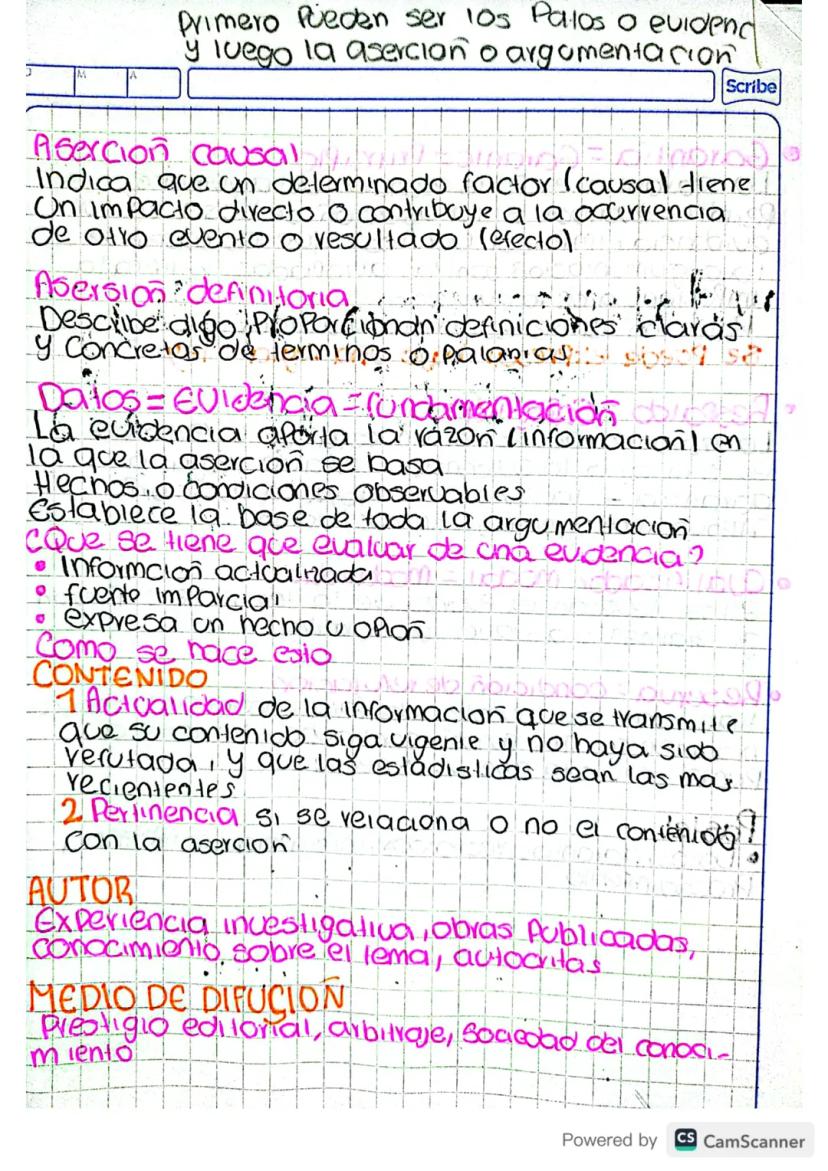 primero Pueden ser los Datos o evidenc
y luego la aserción o argumentación
M A
Scribe
Aserción causal
Indica que un determinado factor (causa) tiene
un impacto directo o contribuye a la ocurrencia
de otro evento o resultado (efecto)
Asersión definitoria
Describe algo, Proporcionan definiciones claras
y concretas de terminos o palabras
Datos = Evidencia = fundamentación
La evidencia aporta la razón (información) en
la que la aserción se basa
Hechos o condiciones observables
Establece la base de toda la argumentación
¿Que se tiene que evaluar de una evidencia?
• Informción actualizada
• fuente imparcial
• expresa un hecho u opión
Como se hace esto
CONTENIDO
1 Actualidad de la información que se transmite
que su contenido siga vigente y no haya sido
refutada, y que las estadísticas sean las mas
recientes
2 Pertinencia si se relaciona o no el contenido
con la aserción
AUTOR
Experiencia investigativa, obras publicadas,
conocimiento sobre el tema, autocitas
MEDIO DE DIFUCIÓN
Prestigio editorial, arbitraje, sociedad del conoci-
miento
Powered by CS CamScanner